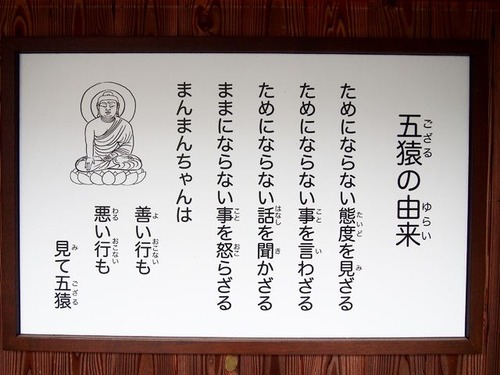 五猿の由来
ためにならない態度を見ざる
ためにならない事を言わざる
ためにならない話を聞かざる
ままにならない事を怒らざる
まんまんちゃんは
善い行も
悪い行も
見て五猿